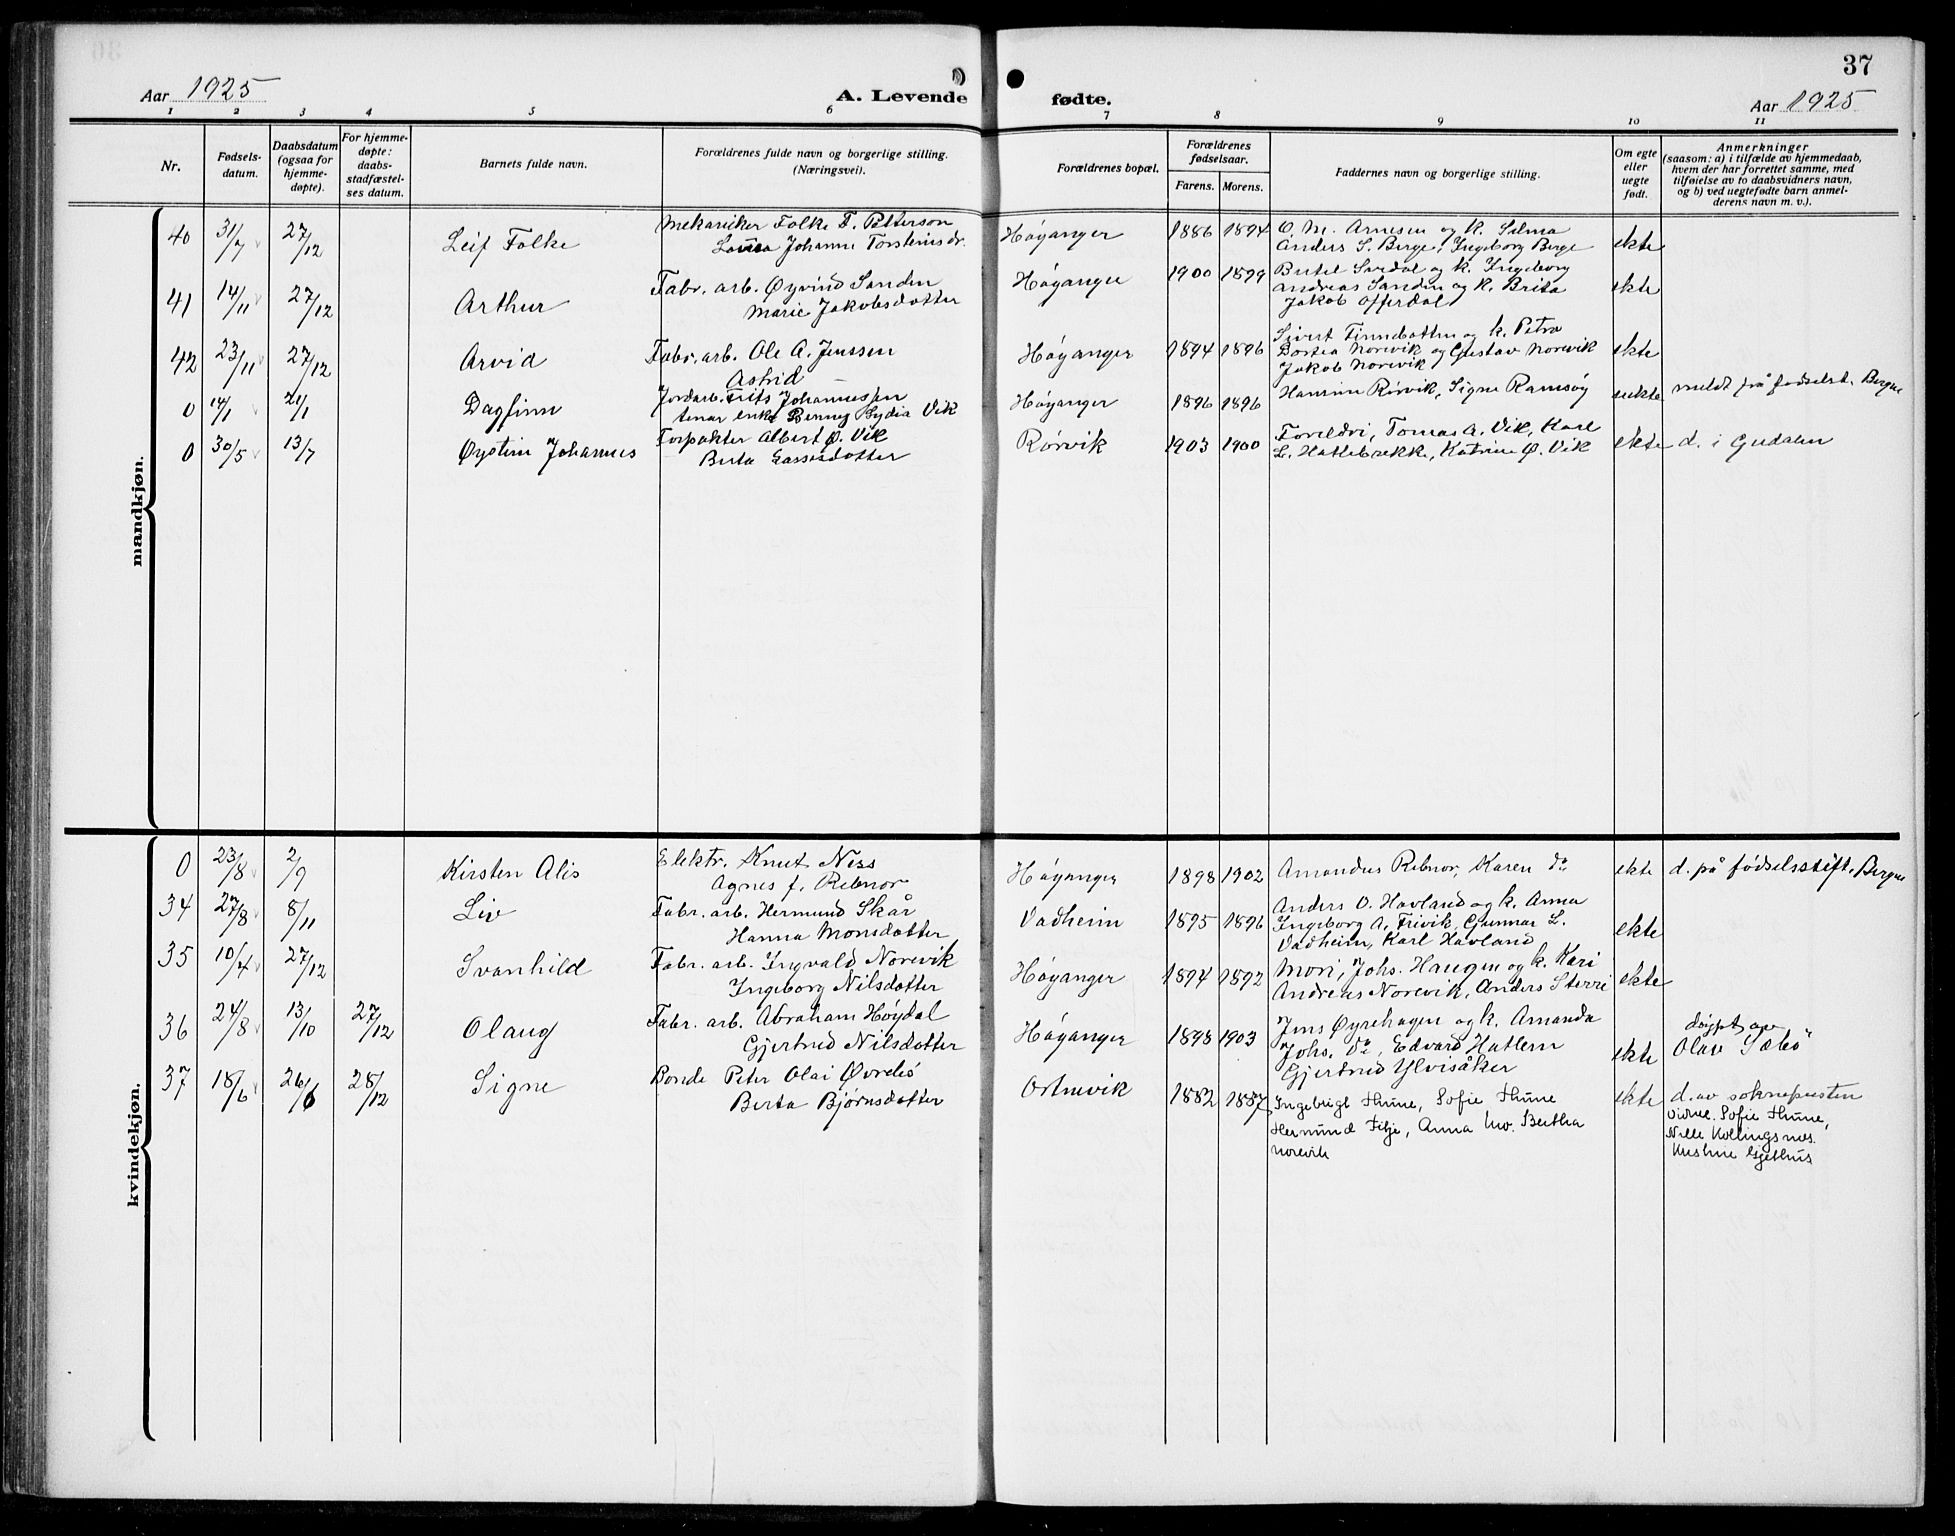 37
Aar 1925
A. Levende fødte.
Aar 1925
1 2 3 4 5 6 7 8 9 10 11
Nr.
Fødsels-
datum.
Daabsdatum
(ogsaa for
hjemme-
døpte).
For hjemme-
døpte:
daabs-
stadfæstel-
ses datum.
Barnets fulde navn.
Forældrenes fulde navn og borgerlige stilling.
(Næringsvei).
Forældrenes bopæl.
Forældrenes
fødselsaar.
Farens. Morens.
Faddernes navn og borgerlige stilling.
Om egte
eller
uegte
født.
Anmerkninger
(saasom: a) i tilfælde av hjemmedaab,
hvem der har forrettet samme, med
tilføielse av to daabsvidners navn,
og b) ved uegtefødte barn anmel-
derens navn m. v.).
mandkjøn.
40 31/7 27/12 Leif Folke
Mekaniker Folke T. Petterson
Johanne Torsteinsdr.
Høyanger 1886 1894
O. M. Arnesen og k. Selma
Anders S. Berge, Ingeborg Berge
ekte
41 14/11 27/12 Arthur
Fabr. arb. Øyvind Sanden
Marie Jakobsdotter
Høyanger 1900 1899
og k. Ingeborg
Andreas Sanden og k. Brita
Jakob Offerdal
ekte
42 23/11 27/12 Arvid
Fabr. arb. Ole A. Jenssen
Astrid
Høyanger 1894 1896
Sivert Finnebotten og k. Petra
Dortea Norevik og Gustav Norevik
Jakob Norevik
ekte
0 14/1 21/1 Dagfinn
Jordarb. Frits Johannessen
Lydia Vik
Høyanger 1896 1896
Rørvik, Signe Ramsøy
uekte
meldt på fødselst. Bergen
0 30/5 13/7 Øystein Johannes
Forpakter Albert Ø. Vik
Berta Lassesdotter
Rørvik 1903 1900
Foreldri, Tomas A. Vik, Karl
L. Hattebrekke, Katrine Ø. Vik
ekte d. i Guddalen
kvindekjøn.
0 23/8 2/9 Kirsten Alis
Elektr. Knut Ness
Agnes f. Rebnor
Høyanger 1898 1902
Amandus Rebnor, Karen do
ekte d. på fødselsstift. Bergen
34 27/8 8/11 Liv
Fabr. arb. Hermund Skår
Hanna Monsdotter
Vadheim 1895 1896
Anders O. Hovland og k. Anna
Ingeborg A. Frivik, Gunnar L.
Vadheim, Karl Havland
ekte
35 10/4 27/12 Svanhild
Fabr. arb. Ingvald Norevik
Ingeborg Nilsdotter
Høyanger 1894 1892
Mori, Johs. Haugen og k. Kari
Andreas Norevik, Anders Sterri
ekte
36 24/8 13/10 27/12 Olaug
Fabr. arb. Abraham Høydal
Gjertrud Nilsdotter
Høyanger 1898 1903
Jens Øyrehagen og k. Amanda
Johs. Do, Edvard Hatlem
Gjertrud Ylvisåker
ekte
døypt av
Olav Sæbø
37 18/6 26/6 28/12 Signe
Bonde Peter Olai Øvrebø
Berta Bjørnsdotter
Ortnevik 1882 1887
Ingebrigt Thune, Sofie Thune
Hermund Fitje, Anna Bertha
Norevik
ekte
d. av soknepresten
Sofie Thune,
Nille Kollingsnes
Gjethus